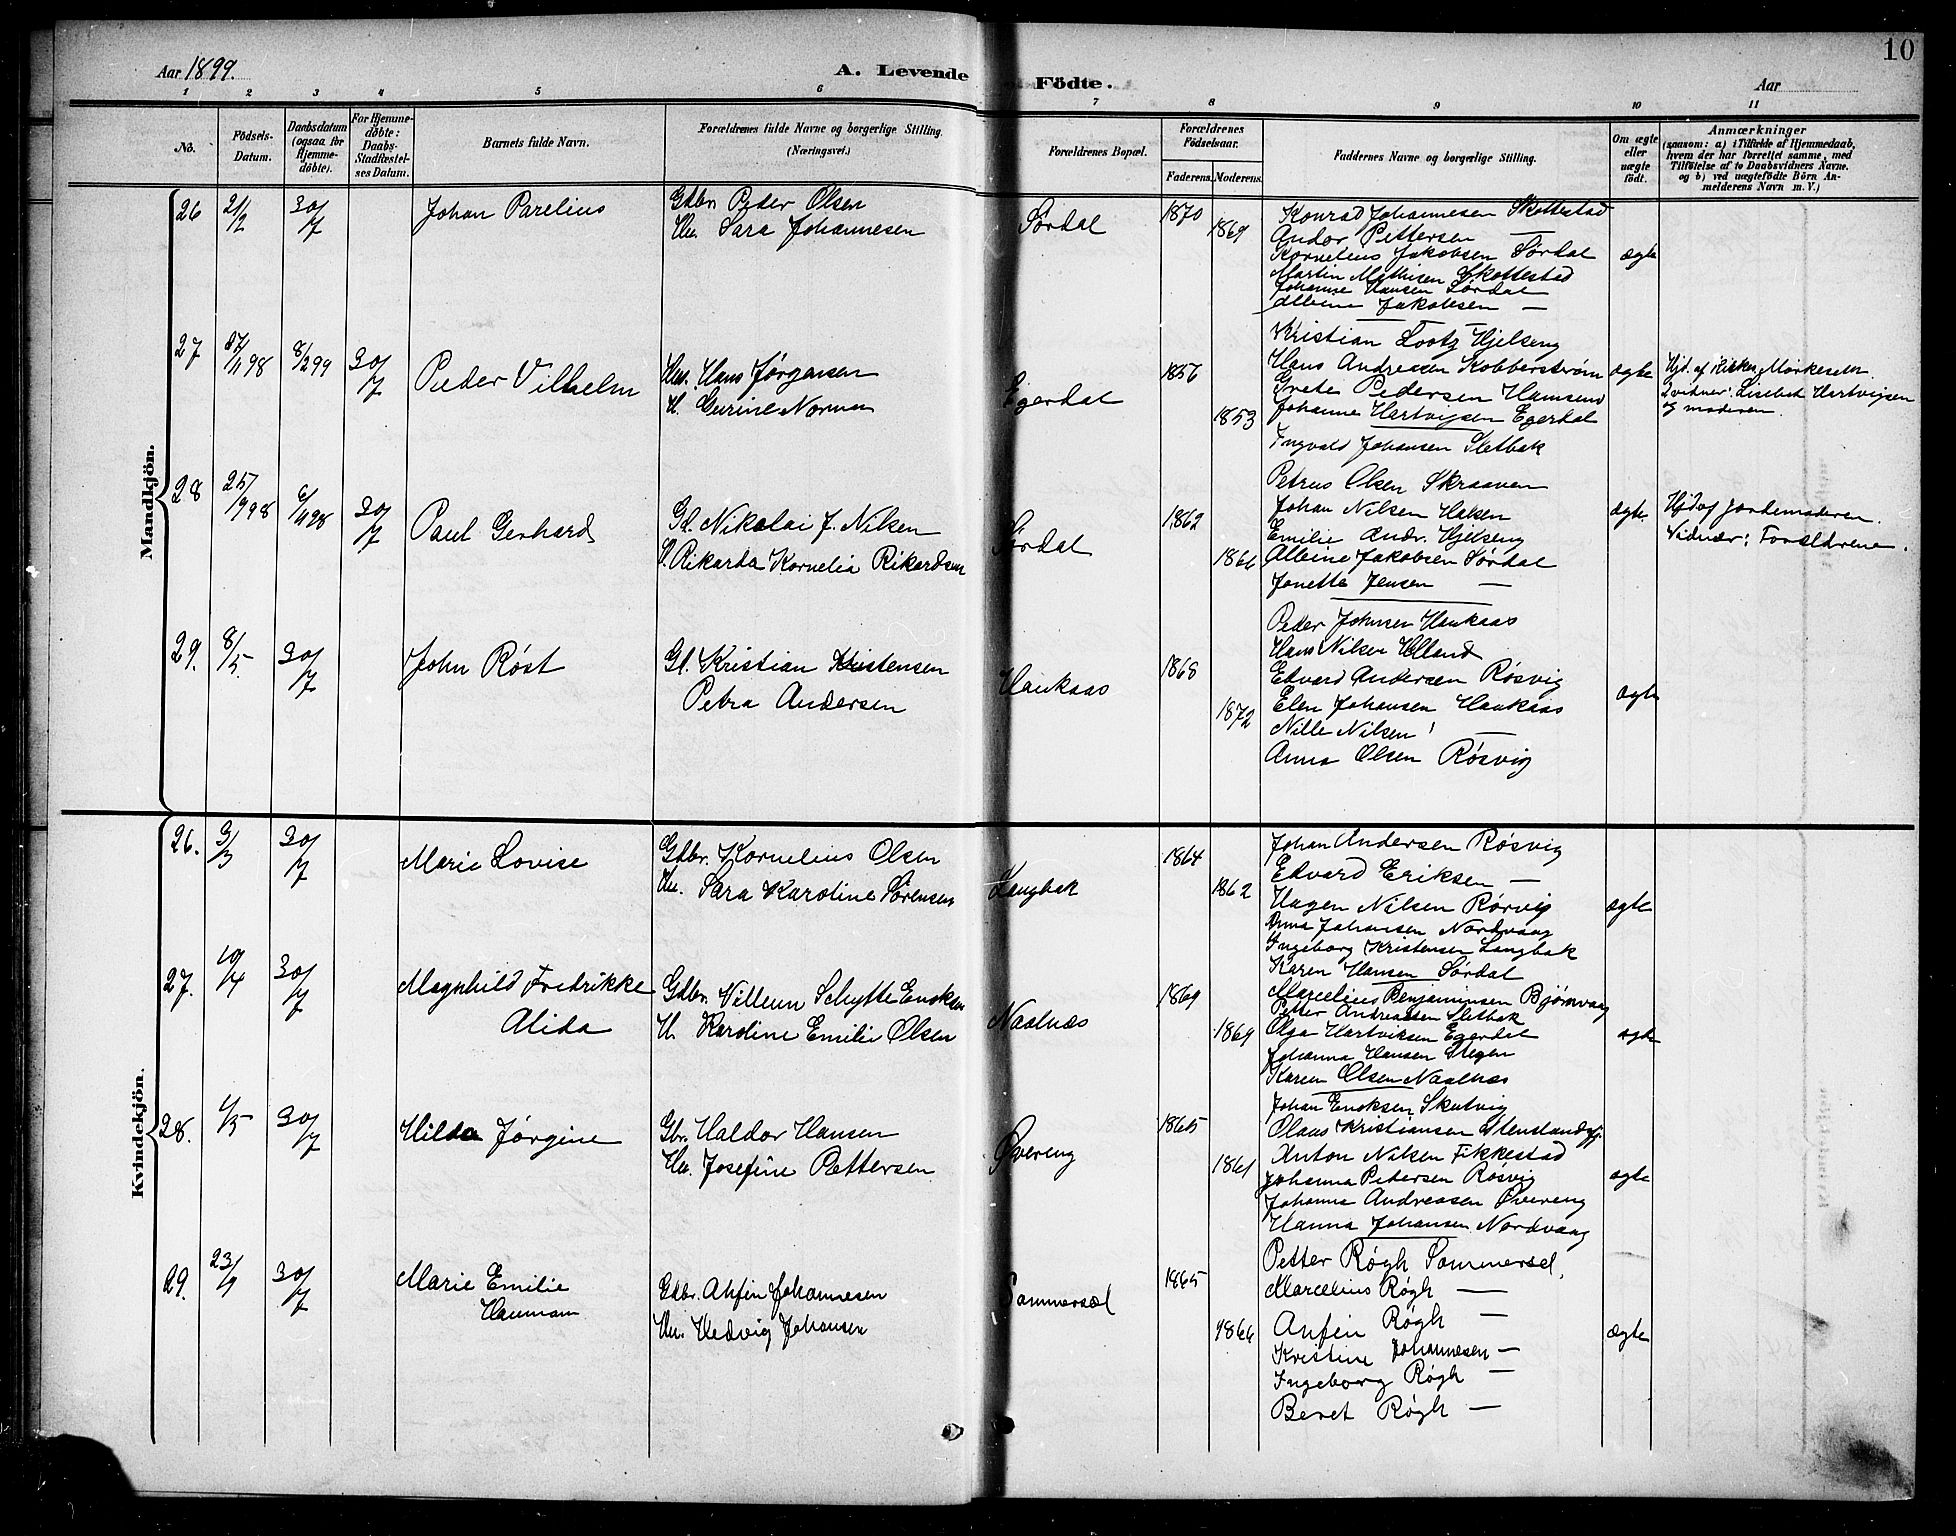 10
Aar 1899.
A. Levende Födte.
Aar
1 2 3 4 5 6 7 8 9 10 11
No.
Födsels-Datum.
Daabsdatum (ogsaa for Hjemme-döbte).
For Hjemme-döbte: Daabs-Stadfæstel-ses Datum.
Barnets fulde Navn.
Forældrenes fulde Navne og borgerlige Stilling.
(Næringsvei.)
Forældrenes Bopæl.
Forældrenes Födselsaar.
Faderens. Moderens.
Faddernes Navne og borgerlige Stilling.
Om ægte eller uægte födt.
Anmærkninger
(saasom: a) i Tilfælde af Hjemmedaab, hvem der har forrettet samme, med Tilföielse af to Daabsvidners Navne. og b) ved uægtefödte Börn An-melderens Navn m. V.)
Mandkjön.
26 21/2 30/7 Johan Parelius
Gdbr. Peder Olsen
Hu. Sara Johannesen
Sørdal 1870 1869
Konrad Johannesen Skottestad
Andor Pettersen —
Kornelius Jakobsen Sørdal
Martin Mathisen Skottestad
Johanne Hansen Sørdal
Albine Jakobsen —
ægte
27 27/11 98 8/2 99 30/7 Peder Vilhelm
Hus. Hans Jørgensen
H. Gurine Norman
Egerdal 1856 1853
Kristian Lootz Hjelseng
Hans Andreasen Kobberstrøm
Grete Pedersen Hamsund
Johanne Hartvigsen Egerdal
Ingvald Johansen Sletbak
ægte
Hjd. af Kirkes. Mørkeseth.
2 vidner: Lisebet Hartvigsen
og moderen.
28 25/9 98 6/11 98 30/7 Paul Gerhard
Gd. Nikolai J. Nilsen
H. Rikarda Kornelia Rikardsen
Sørdal 1862 1866
Petrus Olsen Skraaven
Johan Nilsen Haken
Emilie Andr. Hjelseng
Albine Jakobsen Sørdal
Janette Jensen —
ægte.
Hjd af Jordemoderen.
Vidner: Forældrene.
29. 8/5 30/7 John Røst
Gd. Kristian Kristensen
Petra Andersen
Haukaas 1868 1872
Peder Johnsen Haukaas
Hans Nilsen Ulland
Edvard Andersen Røsvig
Elen Johansen Haukaas
Nille Nilsen —
Anna Olsen Røsvig
ægte
Kvindekjön.
26. 3/3 30/7 Marie Lovise
Gdbr. Kornelius Olsen
Hu. Sara Karoline Sørensen
Langbak 1864 1862
Johan Andersen Røsvig
Edvard Eriksen —
Hagen Nilsen Rørvig
Anna Johansen Nordvaag
Ingeborg Kristensen Langbak
Karen Hansen Sørdal
ægte
27. 10/4 30/7 Magnhild Fredrikke
Alida
Gdbr. Villum Schytte Enoksen
H. Karoline Emilie Olsen
Naalnæs 1869 1869
Marcelius Benjaminsen Bjørnvaag
Petter Andreassen Sletbak
Olga Hartviksen Egerdal
Johanna Hansen Stegen
Karen Olsen Naalnæs
ægte
28. 1/5 30/7 Hilda Jørgine
Gbr. Haldor Hansen
Hu. Josefine Pettersen
Øvereng 1865 1861
Johan Enoksen Skutvig
Olaus Kristiansen
Anton Nilsen Fikkestad
Johanna Pedersen Røsvig
Johanna Andreasen Øvereng
Hanna Johansen Nordvaag
ægte
29. 23/9 30/7 Marie Emilie
Haumann
Gdbr. Anfin Johannesen
Hu. Hedvig Johansen
Sommersel 1865 1866
Petter Røgh Sommersel.
Marcelius Røgh —
Anfin Røgh —
Kristine Johannesen —
Ingeborg Røgh —
Beret Røgh —
ægte